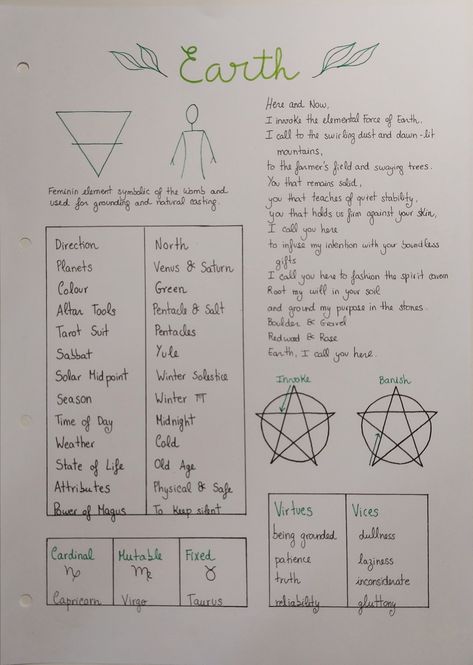 Earth
Feminin element symbolic of the womb and
used for grounding and natural casting.
Direction North
Planets Venus & Saturn
Colour Green
Altar Tools Pentacle & Salt
Tarot Suit Pentacles
Sabbat Yule
Solar Midpoint Winter Solestice
Season Winter
Time of Day Midnight
Weather Cold
State of Life Old Age
Attributes Physical & Safe
Power of Magus To Keep silent
Cardinal Mutable Fixed
♑ ♍ ♉
Capricorn Virgo Taurus
Here and Now,
I invoke the elemental Force of Earth.
I call to the swirling dust and dawn-lit
mountains,
to the farmer's field and swaying trees.
You that remains solid,
you that teaches of quiet stability,
you that holds us firm against your skin,
I call you here
to infuse my intention with your boundless
gifts
I call you here to fashion the spirit cavern
Root my will in your soil
and ground my purpose in the stones.
Boulder & Gravel
Redwood & Rose
Earth, I call you here.
Invoke Banish
Virtues Vices
being grounded dullness
patience laziness
truth inconsiderate
reliability gluttony